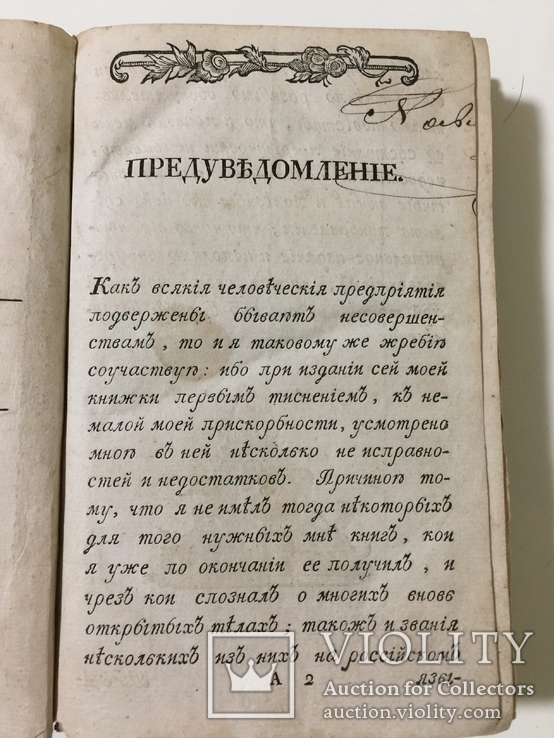 ПРЕДУВѢДОМЛЕНІЕ.
Какъ всякія человѣческія предпріятія
подвержены бываютъ несовершен-
ствамъ, то и я таковому же жребію
соучаствую: ибо при изданіи сей моей
книжки первымъ тисненіемъ, къ не-
малой моей прискорбности, усмотрено
мною въ ней нѣсколько не исправно-
стей и недостатковъ. Причиною то-
му, что я не имѣлъ тогда нѣкоторыхъ
для того нужныхъ мнѣ книгъ, кои
я уже по окончаніи ее получилъ, и
чрезъ кои спозналъ о многихъ вновь
открытыхъ тѣлахъ; такожъ и званія
нѣсколькихъ изъ нихъ на россійскомъ
А 2 язы-
VIOLITY
Auction for Collectors
auction.violity.com